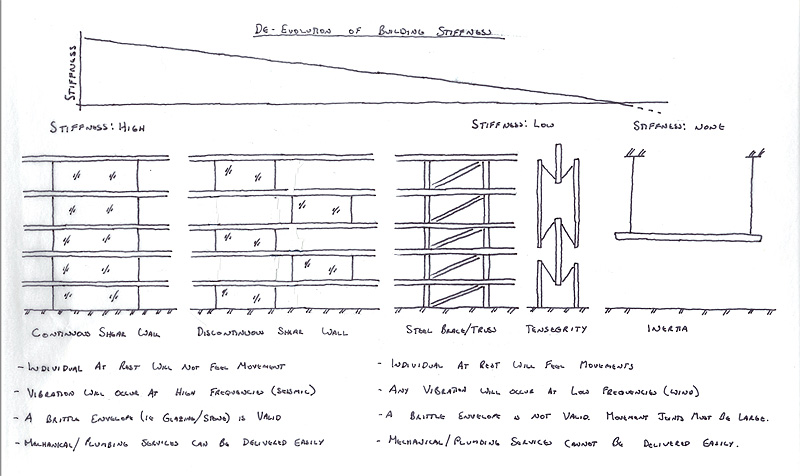 DE-EVOLUTION OF BUILDING STIFFNESS
STIFFNESS
STIFFNESS: HIGH
STIFFNESS: LOW
STIFFNESS: NONE
CONTINUOUS SHEAR WALL
DISCONTINUOUS SHEAR WALL
STEEL BRACE/TRUSS
TENSEGRITY
INERTIA
- INDIVIDUAL AT REST WILL NOT FEEL MOVEMENT
- VIBRATION WILL OCCUR AT HIGH FREQUENCIES (SEISMIC)
- A BRITTLE ENVELOPE (IE GLAZING/STONE) IS VALID
- MECHANICAL/PLUMBING SERVICES CAN BE DELIVERED EASILY
- INDIVIDUAL AT REST WILL FEEL MOVEMENTS
- ANY VIBRATION WILL OCCUR AT LOW FREQUENCIES (WIND)
- A BRITTLE ENVELOPE IS NOT VALID. MOVEMENT JOINTS MUST BE LARGE.
- MECHANICAL/PLUMBING SERVICES CANNOT BE DELIVERED EASILY.